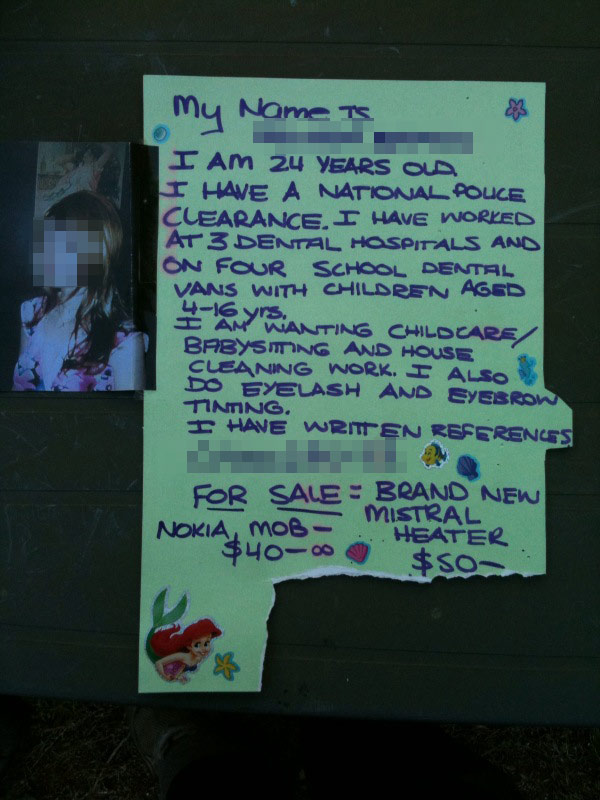 My Name IS
I AM 24 YEARS OLD.
I HAVE A NATIONAL POLICE
CLEARANCE. I HAVE WORKED
AT 3 DENTAL HOSPITALS AND
ON FOUR SCHOOL DENTAL
VANS WITH CHILDREN AGED
4-16 yrs.
I AM WANTING CHILDCARE/
BABYSITTING AND HOUSE
CLEANING WORK. I ALSO
DO EYELASH AND EYEBROW
TINTING.
I HAVE WRITTEN REFERENCES
FOR SALE = BRAND NEW
MISTRAL
HEATER
$50-
NOKIA MOB -
$40-